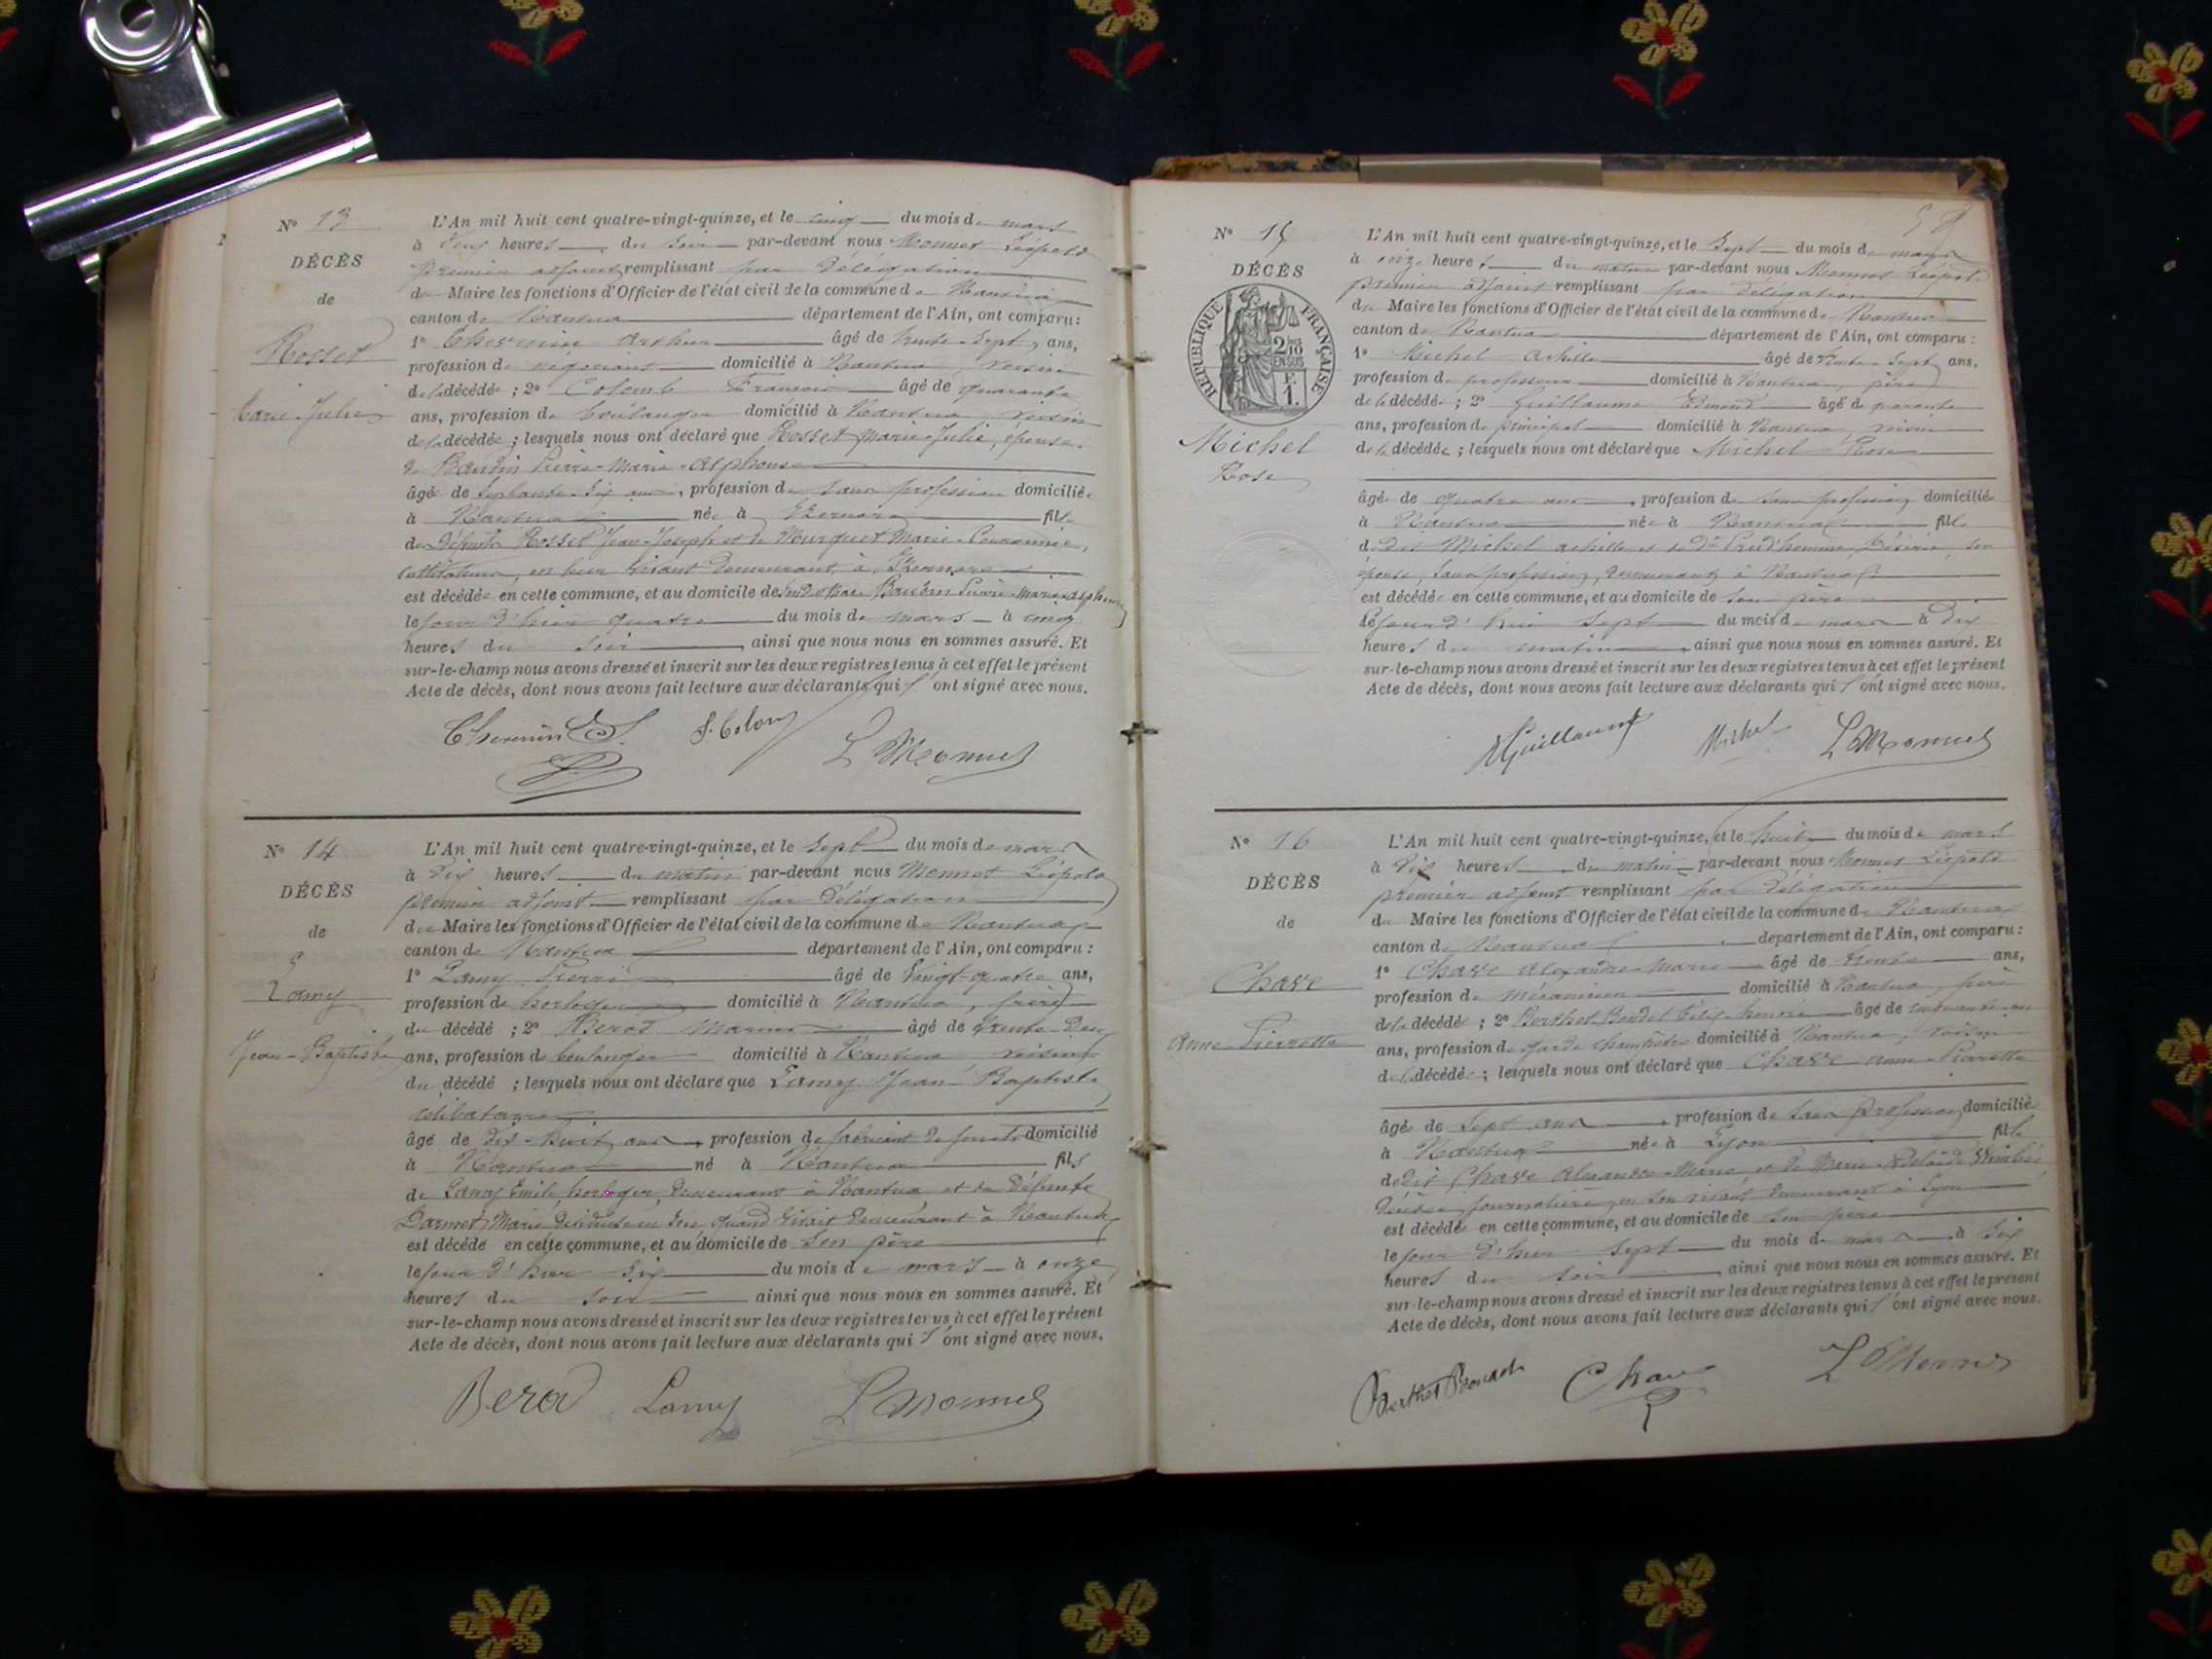 N° 13
DÉCÈS
de
Rosset
Marie-Julie
L'An mil huit cent quatre-vingt-quinze, et le cinq du mois de mars
à deux heures du soir par-devant nous Monnet Léopold
premier adjoint remplissant par délégation
du Maire les fonctions d'Officier de l'état civil de la commune de Nantua
canton de Nantua département de l'Ain, ont comparu :
1° Thevenin Arthur âgé de trente-sept ans,
profession de négociant domicilié à Nantua, voisin
de la décédée ; 2° Colomb François âgé de quarante
ans, profession de boulanger domicilié à Nantua, voisin
de la décédée ; lesquels nous ont déclaré que Rosset Marie-Julie, épouse
de Baudin Pierre-Marie-Alphonse
âgée de septante-six ans, profession de sans profession domiciliée
à Nantua née à fille
de défunts Rosset Jean-Joseph et de Marie
cultivateurs, en leur vivant demeurant à
est décédée en cette commune, et au domicile de Baudin Pierre-Marie-Alphonse
le jour d'hier quatre du mois de mars à cinq
heures du soir ainsi que nous nous en sommes assuré. Et
sur-le-champ nous avons dressé et inscrit sur les deux registres tenus à cet effet le présent
Acte de décès, dont nous avons fait lecture aux déclarants qui l'ont signé avec nous.
Thevenin F. Colomb L Monnet
N° 14
DÉCÈS
de
Lamy
Jean-Baptiste
L'An mil huit cent quatre-vingt-quinze, et le sept du mois de mars
à dix heures du matin par-devant nous Monnet Léopold
premier adjoint remplissant par délégation
du Maire les fonctions d'Officier de l'état civil de la commune de Nantua
canton de Nantua département de l'Ain, ont comparu :
1° Lamy Pierre âgé de vingt-quatre ans,
profession de horloger domicilié à Nantua, frère
du décédé ; 2° Berod Marius âgé de trente-deux
ans, profession de boulanger domicilié à Nantua voisin
du décédé ; lesquels nous ont déclaré que Lamy Jean-Baptiste
célibataire
âgé de dix-huit ans, profession de fabricant de domicilié
à Nantua né à Nantua fils
de Lamy Emile, horloger, demeurant à Nantua et de défunte
Marie quand vivait demeurant à Nantua
est décédé en cette commune, et au domicile de son père
le jour d'hier six du mois de mars à onze
heures du soir ainsi que nous nous en sommes assuré. Et
sur-le-champ nous avons dressé et inscrit sur les deux registres tenus à cet effet le présent
Acte de décès, dont nous avons fait lecture aux déclarants qui l'ont signé avec nous.
Berod Lamy L Monnet
N° 15
DÉCÈS
RÉPUBLIQUE FRANÇAISE
2/10 EN SUS
F. 1.
Michel
Rose
L'An mil huit cent quatre-vingt-quinze, et le sept du mois de mars
à onze heures du matin par-devant nous Monnet Léopold
premier adjoint remplissant par délégation
du Maire les fonctions d'Officier de l'état civil de la commune de Nantua
canton de Nantua département de l'Ain, ont comparu :
1° Michel Achille âgé de trente-sept ans,
profession de professeur domicilié à Nantua, père
de la décédée ; 2° Guillaume Edmond âgé de quarante
ans, profession de principal domicilié à Nantua, voisin
de la décédée ; lesquels nous ont déclaré que Michel Rose
âgée de quatre ans, profession de sans profession domiciliée
à Nantua née à Nantua fille
de dit Michel Achille et de Prudhomme Désirée, son
épouse, sans profession, demeurant à Nantua
est décédée en cette commune, et au domicile de son père
le jour d'hui sept du mois de mars à dix
heures du matin ainsi que nous nous en sommes assuré. Et
sur-le-champ nous avons dressé et inscrit sur les deux registres tenus à cet effet le présent
Acte de décès, dont nous avons fait lecture aux déclarants qui l'ont signé avec nous.
EGuillaume Michel L Monnet
N° 16
DÉCÈS
de
Chave
Anne-Pierrette
L'An mil huit cent quatre-vingt-quinze, et le huit du mois de mars
à dix heures du matin par-devant nous Monnet Léopold
premier adjoint remplissant par délégation
du Maire les fonctions d'Officier de l'état civil de la commune de Nantua
canton de Nantua département de l'Ain, ont comparu :
1° Chave Alexandre-Marie âgé de trente ans,
profession de mécanicien domicilié à Nantua, père
de la décédée ; 2° Berthet-Bondet âgé de cinquante-un
ans, profession de garde champêtre domicilié à Nantua, voisin
de la décédée ; lesquels nous ont déclaré que Chave Anne-Pierrette
âgée de sept ans, profession de sans profession, domiciliée
à Nantua née à Lyon fille
de dit Chave Alexandre-Marie et de Marie-Adélaïde
journalière, en son vivant demeurant à Lyon
est décédée en cette commune, et au domicile de son père
le jour d'hier sept du mois de mars à six
heures du soir ainsi que nous nous en sommes assuré. Et
sur-le-champ nous avons dressé et inscrit sur les deux registres tenus à cet effet le présent
Acte de décès, dont nous avons fait lecture aux déclarants qui l'ont signé avec nous.
Berthet Bondet Chave L Monnet